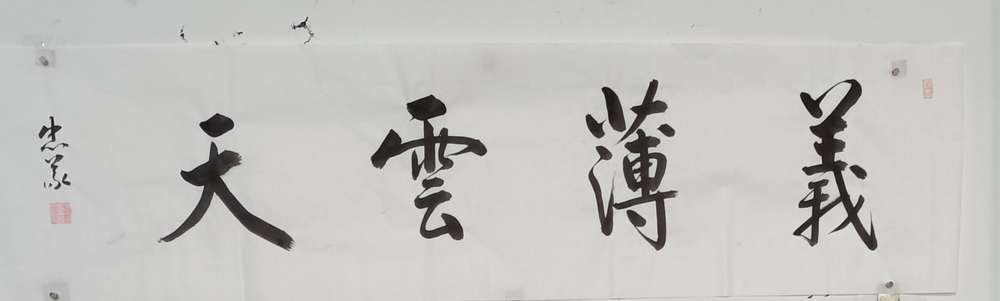 義薄雲天
忠义